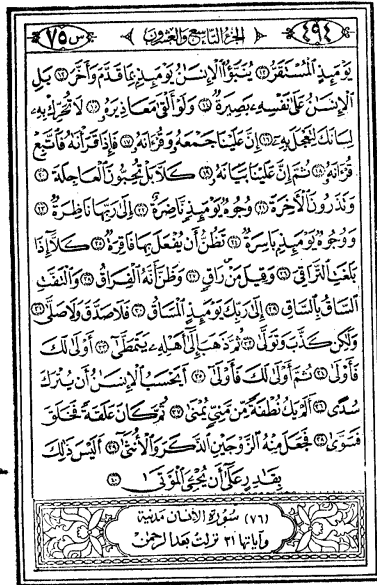 ٤٩٤ الجزء التاسع والعشرون س ٧٥
يَوْمَئِذٍ الْمُسْتَقَرُّ ⑫ يُنَبَّؤُا الْإِنسَٰنُ يَوْمَئِذٍ بِمَا قَدَّمَ وَأَخَّرَ ⑬ بَلِ
الْإِنسَٰنُ عَلَىٰ نَفْسِهِۦ بَصِيرَةٌ ⑭ وَلَوْ أَلْقَىٰ مَعَاذِيرَهُۥ ⑮ لَا تُحَرِّكْ بِهِۦ
لِسَانَكَ لِتَعْجَلَ بِهِۦٓ ⑯ إِنَّ عَلَيْنَا جَمْعَهُۥ وَقُرْءَانَهُۥ ⑰ فَإِذَا قَرَأْنَٰهُ فَاتَّبِعْ
قُرْءَانَهُۥ ⑱ ثُمَّ إِنَّ عَلَيْنَا بَيَانَهُۥ ⑲ كَلَّا بَلْ تُحِبُّونَ الْعَاجِلَةَ ⑳
وَتَذَرُونَ الْآخِرَةَ ㉑ وُجُوهٌ يَوْمَئِذٍ نَّاضِرَةٌ ㉒ إِلَىٰ رَبِّهَا نَاظِرَةٌ ㉓
وَوُجُوهٌ يَوْمَئِذٍ بَاسِرَةٌ ㉔ تَظُنُّ أَن يُفْعَلَ بِهَا فَاقِرَةٌ ㉕ كَلَّآ إِذَا
بَلَغَتِ التَّرَاقِيَ ㉖ وَقِيلَ مَنْ رَاقٍ ㉗ وَظَنَّ أَنَّهُ الْفِرَاقُ ㉘ وَالْتَفَّتِ
السَّاقُ بِالسَّاقِ ㉙ إِلَىٰ رَبِّكَ يَوْمَئِذٍ الْمَسَاقُ ㉚ فَلَا صَدَّقَ وَلَا صَلَّىٰ ㉛
وَلَٰكِن كَذَّبَ وَتَوَلَّىٰ ㉜ ثُمَّ ذَهَبَ إِلَىٰٓ أَهْلِهِۦ يَتَمَطَّىٰٓ ㉝ أَوْلَىٰ لَكَ
فَأَوْلَىٰ ㉞ ثُمَّ أَوْلَىٰ لَكَ فَأَوْلَىٰٓ ㉟ أَيَحْسَبُ الْإِنسَٰنُ أَن يُتْرَكَ
سُدًى ㊱ أَلَمْ يَكُ نُطْفَةً مِّن مَّنِيٍّ يُمْنَىٰ ㊲ ثُمَّ كَانَ عَلَقَةً فَخَلَقَ
فَسَوَّىٰ ㊳ فَجَعَلَ مِنْهُ الزَّوْجَيْنِ الذَّكَرَ وَالْأُنثَىٰٓ ㊴ أَلَيْسَ ذَٰلِكَ
بِقَٰدِرٍ عَلَىٰٓ أَن يُحْـِۧيَ الْمَوْتَىٰ ㊵
(٧٦) سورة الإنسان مدنية
وآياتها ٣١ نزلت بعد الرحمن